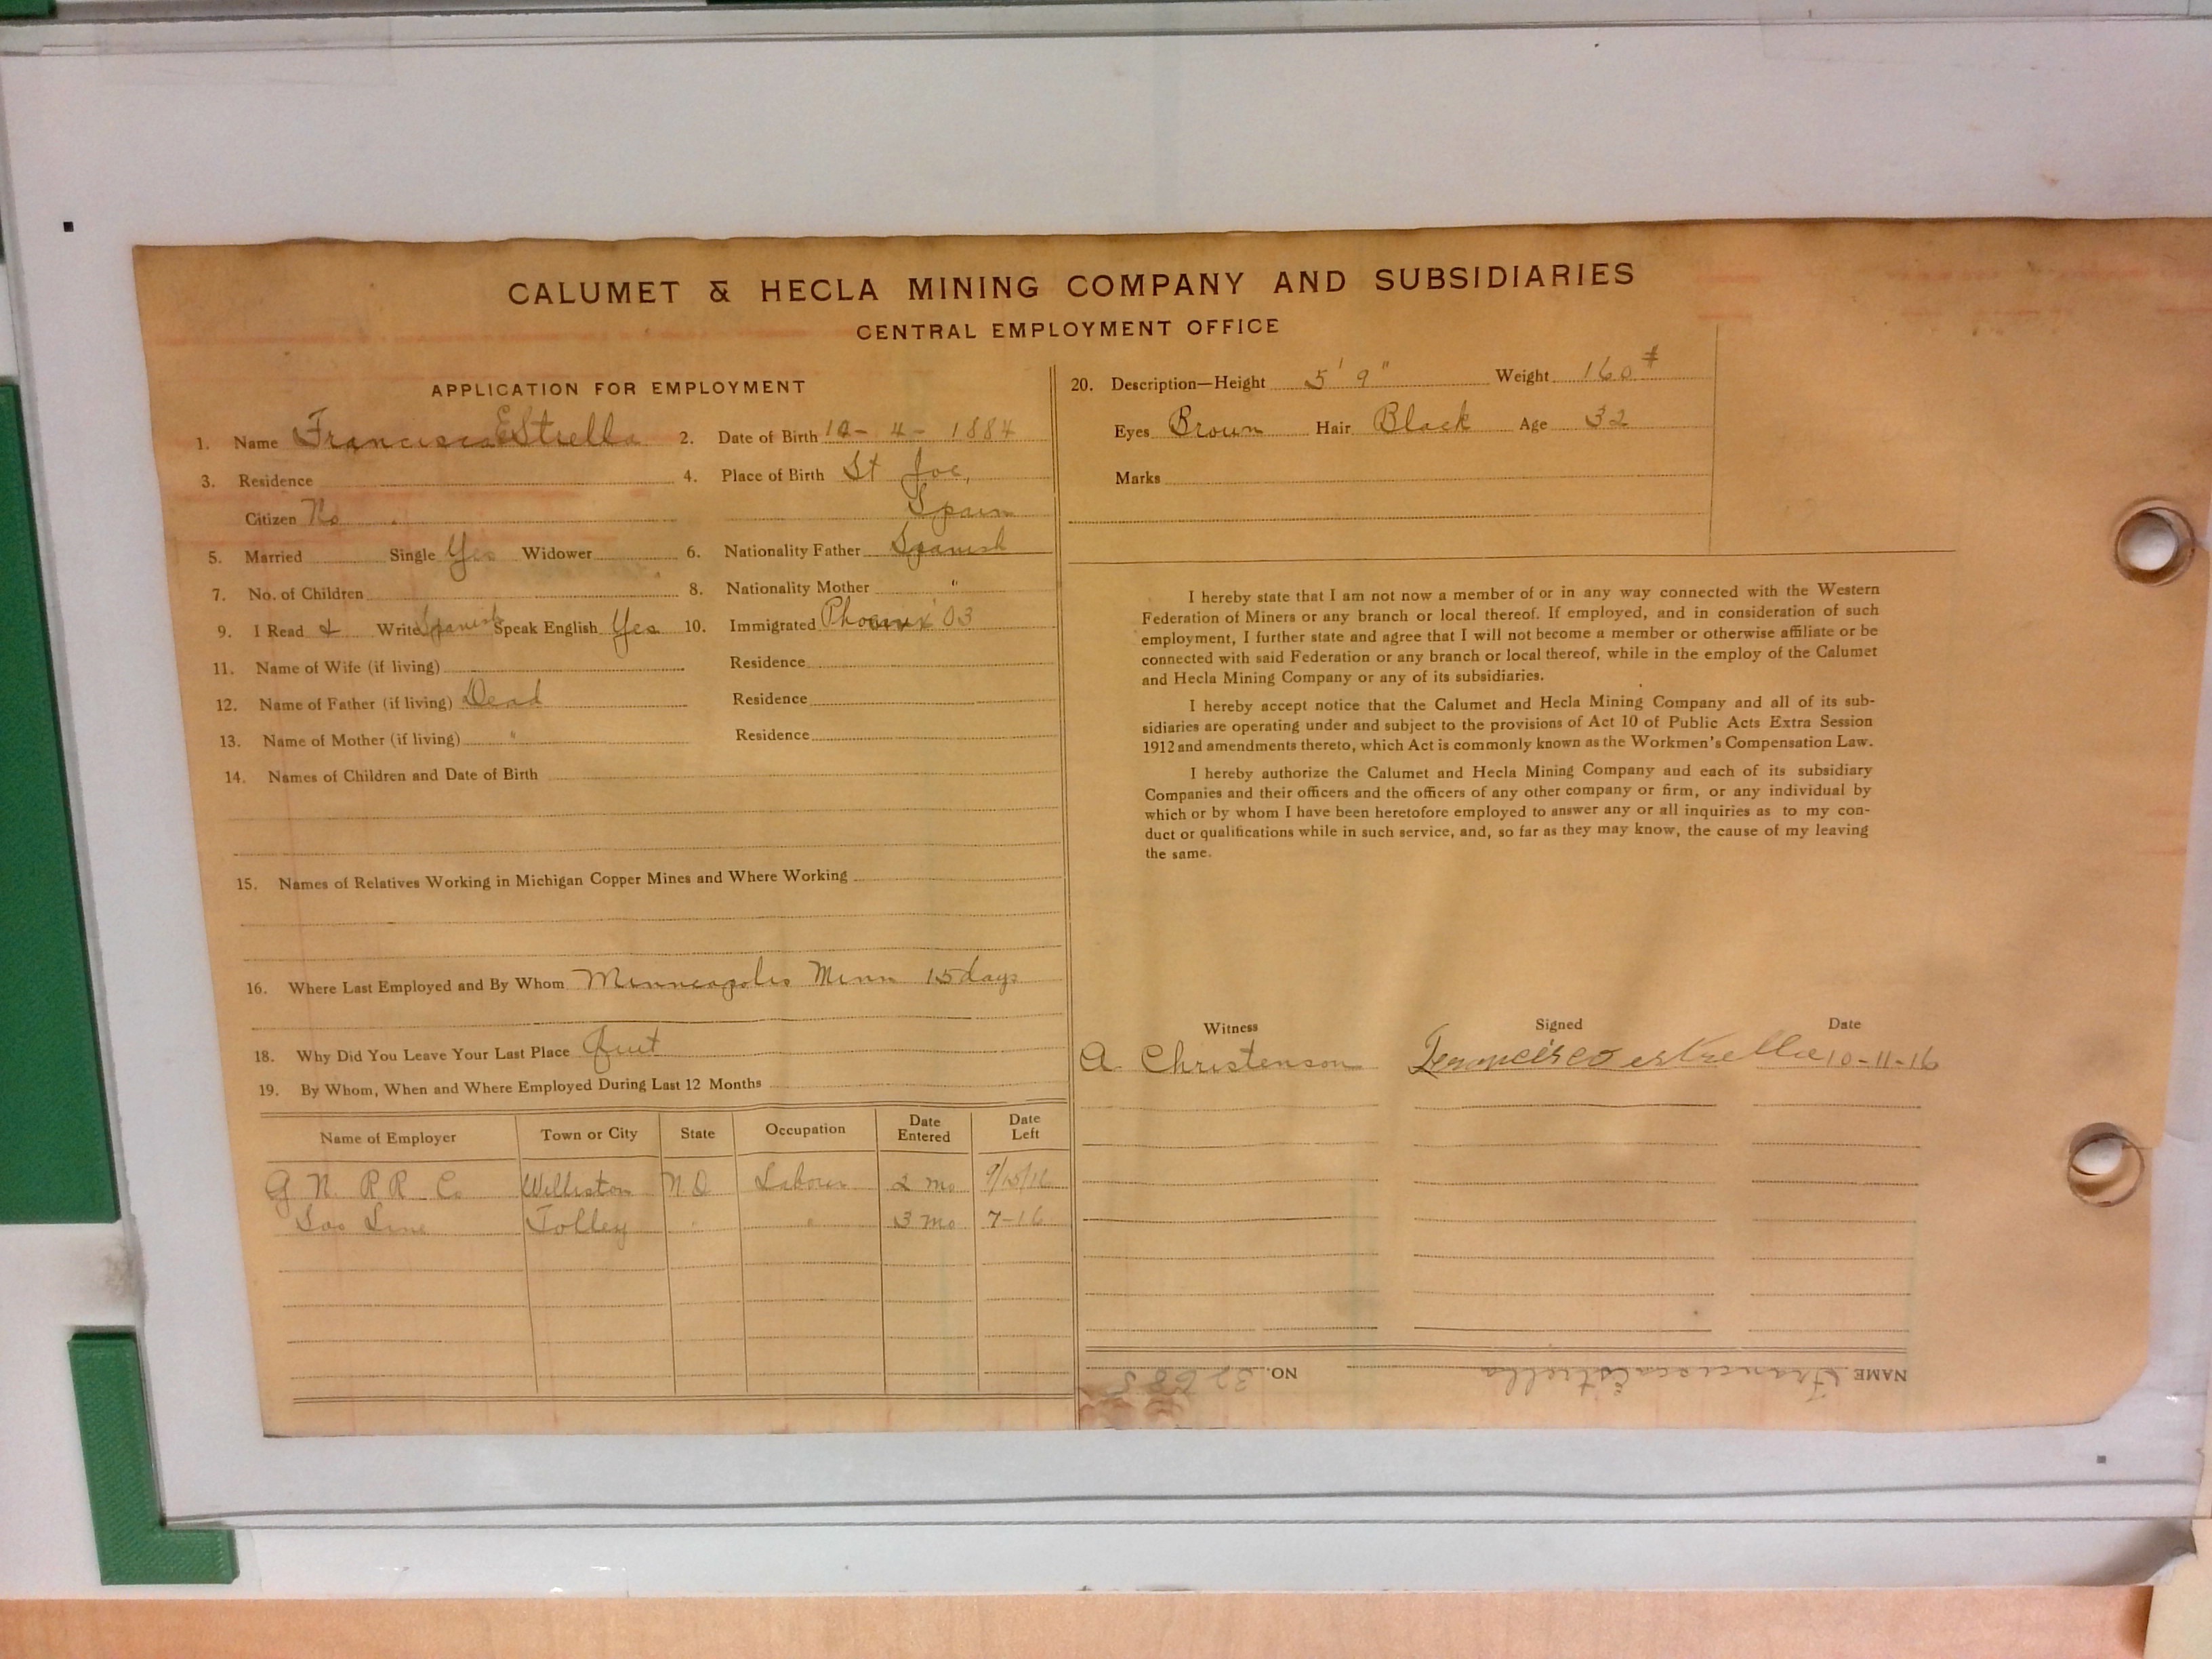 CALUMET & HECLA MINING COMPANY AND SUBSIDIARIES
CENTRAL EMPLOYMENT OFFICE
APPLICATION FOR EMPLOYMENT
1. Name Francisca EStrella 2. Date of Birth 4 - 1884
3. Residence 4. Place of Birth St Joe,
Citizen No Spain
5. Married Single Yes Widower 6. Nationality Father Spanish
7. No. of Children 8. Nationality Mother "
9. I Read & Write Spanish Speak English Yes 10. Immigrated '03
11. Name of Wife (if living) Residence
12. Name of Father (if living) Dead Residence
13. Name of Mother (if living) " Residence
14. Names of Children and Date of Birth
15. Names of Relatives Working in Michigan Copper Mines and Where Working
16. Where Last Employed and By Whom Minneapolis Minn 15 days
18. Why Did You Leave Your Last Place Quit
19. By Whom, When and Where Employed During Last 12 Months
Name of Employer Town or City State Occupation Date Entered Date Left
G N. R R Co Williston N D Labour 2 mo 9/15/16
Soo Line Tolley " " 3 mo 7-16
20. Description—Height 5' 9" Weight 160 #
Eyes Brown Hair Black Age 32
Marks
I hereby state that I am not now a member of or in any way connected with the Western
Federation of Miners or any branch or local thereof. If employed, and in consideration of such
employment, I further state and agree that I will not become a member or otherwise affiliate or be
connected with said Federation or any branch or local thereof, while in the employ of the Calumet
and Hecla Mining Company or any of its subsidiaries.
I hereby accept notice that the Calumet and Hecla Mining Company and all of its sub-
sidiaries are operating under and subject to the provisions of Act 10 of Public Acts Extra Session
1912 and amendments thereto, which Act is commonly known as the Workmen's Compensation Law.
I hereby authorize the Calumet and Hecla Mining Company and each of its subsidiary
Companies and their officers and the officers of any other company or firm, or any individual by
which or by whom I have been heretofore employed to answer any or all inquiries as to my con-
duct or qualifications while in such service, and, so far as they may know, the cause of my leaving
the same.
Witness Signed Date
A. Christenson Francisco estrella 10-11-16
NAME Francisca Estrella NO.